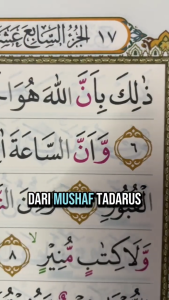 الجزء السابع عشر ١٧
ذٰلِكَ بِاَنَّ اللّٰهَ هُوَ
٦ وَّاَنَّ السَّاعَةَ
DARI MUSHAF TADARUS
الْقُبُوْرِ
وَّلَا كِتٰبٍ مُّنِيْرٍ ٨